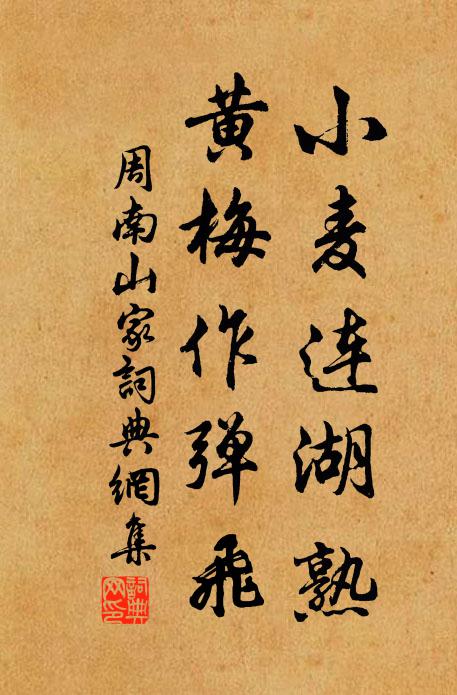 小麦连湖熟
黄梅作弹飛
周南山家詞典網集
詞典
网印